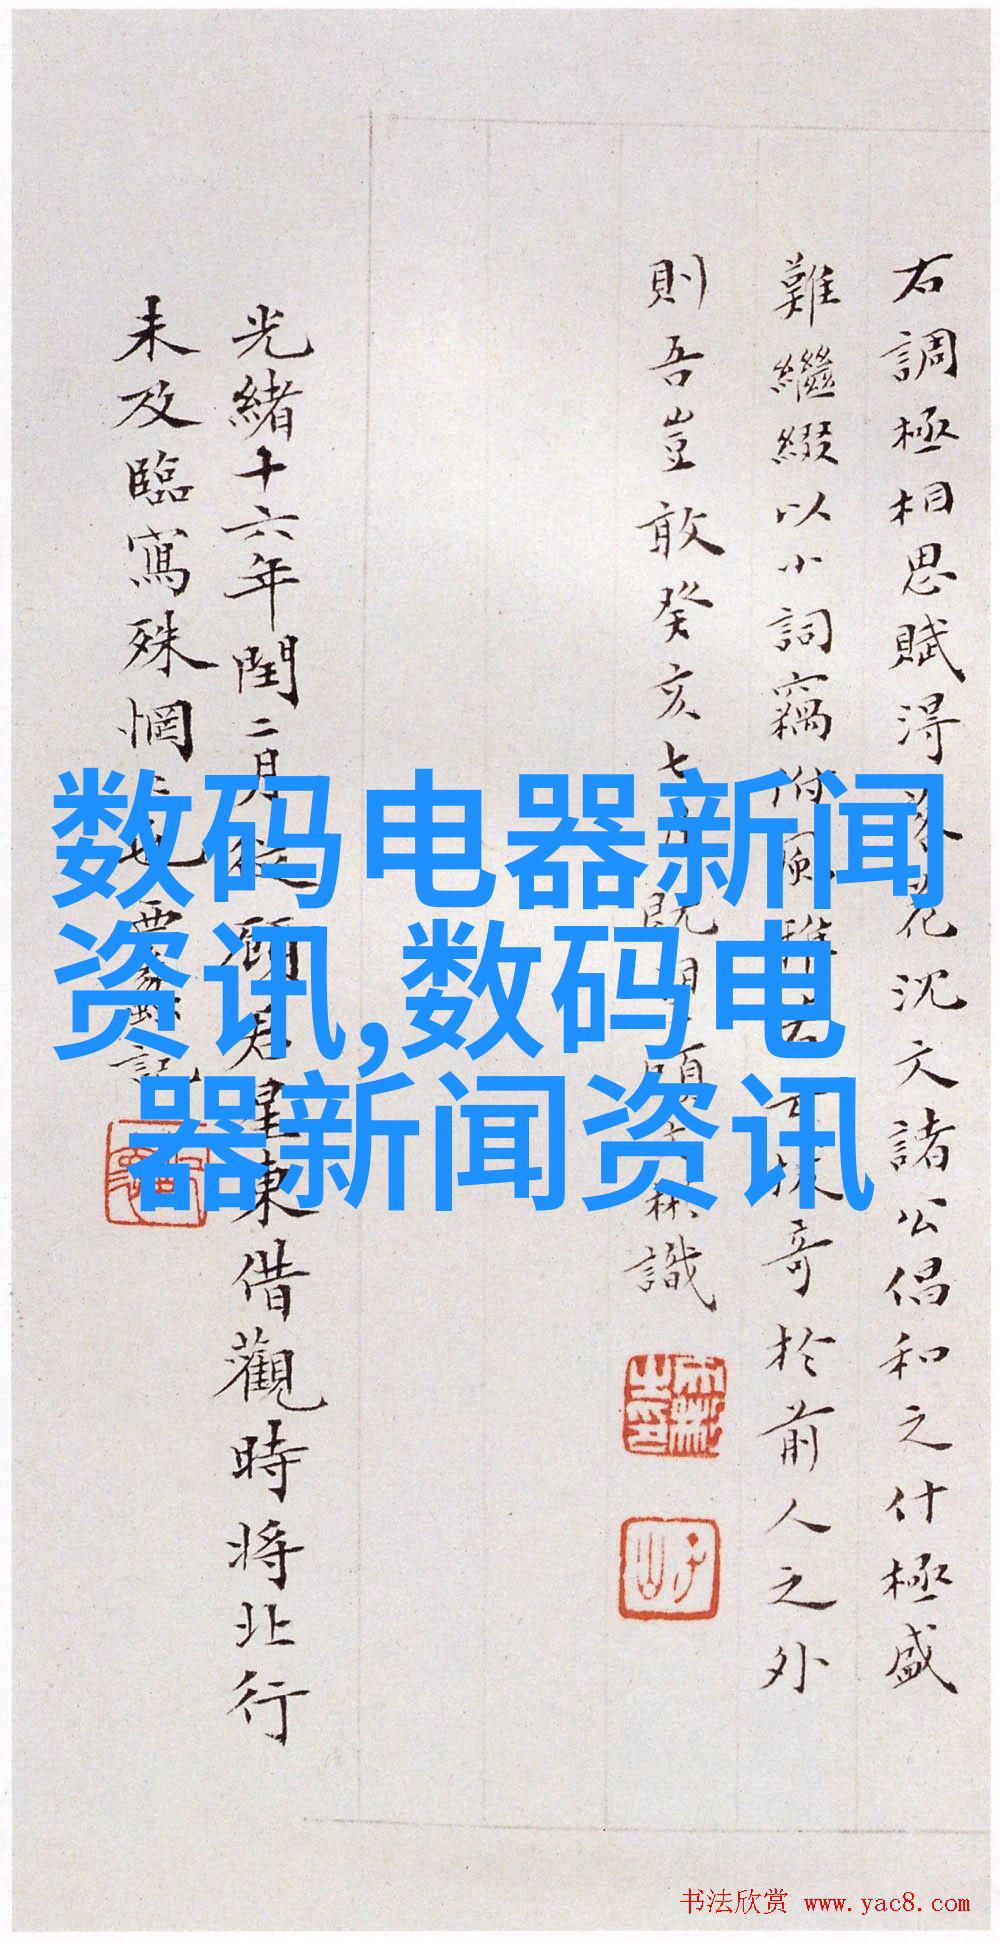 右調極相思賦得落花沈文諸公倡和之什極盛
難繼綴以小詞竊附風雅 奇於前人之外
則吾豈敢癸亥七月既 識
光緒十六年閏二月從顧君星東借觀時將北行
未及臨寫殊惘二也 記
数码电器新闻
资讯,数码电
器新闻资讯
书法欣赏 www.yac8.com